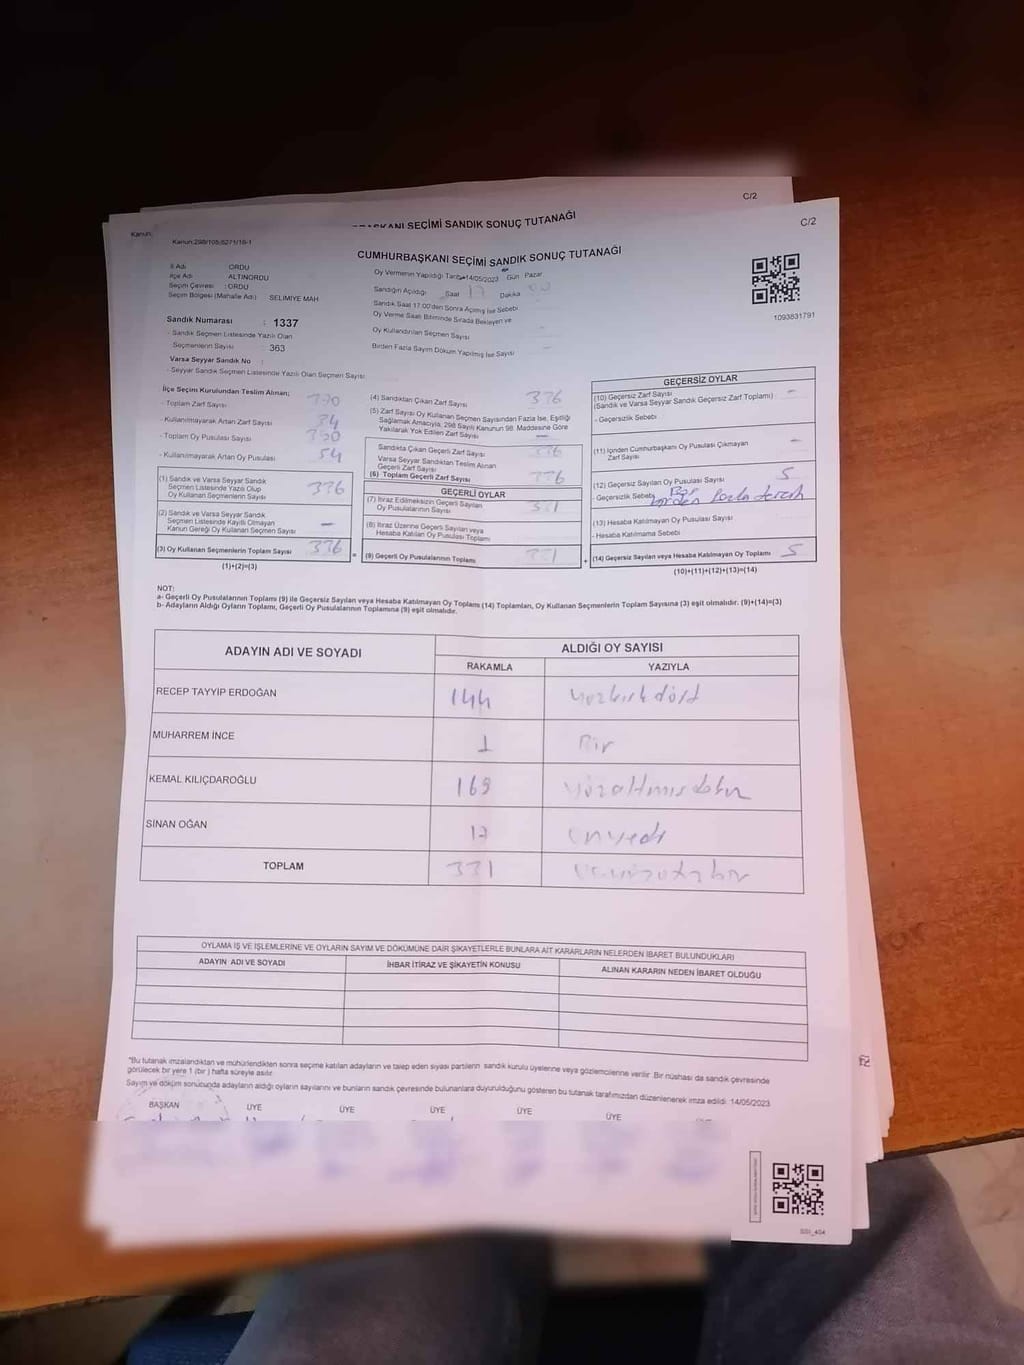 C/2
BAŞKANI SEÇİMİ SANDIK SONUÇ TUTANAĞI
Kanun:
C/2
Kanun:298/105;6271/18-1
CUMHURBAŞKANI SEÇİMİ SANDIK SONUÇ TUTANAĞI
İl Adı ORDU
İlçe Adı ALTINORDU
Seçim Çevresi : ORDU
Seçim Bölgesi (Mahalle Adı) SELİMİYE MAH
Sandık Numarası : 1337
- Sandık Seçmen Listesinde Yazılı Olan
Seçmenlerin Sayısı : 363
Varsa Seyyar Sandık No :
- Seyyar Sandık Seçmen Listesinde Yazılı Olan Seçmen Sayısı
Oy Vermenin Yapıldığı Tarih 14/05/2023 Gün Pazar
Sandığın Açıldığı Saat 17 Dakika 00
Sandık Saat 17.00'den Sonra Açılmış İse Sebebi
Oy Verme Saati Bitiminde Sırada Bekleyen ve
Oy Kullandırılan Seçmen Sayısı
Birden Fazla Sayım Döküm Yapılmış İse Sayısı
1093831791
İlçe Seçim Kurulundan Teslim Alınan;
- Toplam Zarf Sayısı 370
- Kullanılmayarak Artan Zarf Sayısı 34
- Toplam Oy Pusulası Sayısı
- Kullanılmayarak Artan Oy Pusulası 54
(1) Sandık ve Varsa Seyyar Sandık
Seçmen Listesinde Yazılı Olup
Oy Kullanan Seçmenlerin Sayısı 336
(2) Sandık ve Varsa Seyyar Sandık
Seçmen Listesinde Kayıtlı Olmayan
Kanun Gereği Oy Kullanan Seçmen Sayısı -
(3) Oy Kullanan Seçmenlerin Toplam Sayısı 336
(1)+(2)=(3)
(4) Sandıktan Çıkan Zarf Sayısı 336
(5) Zarf Sayısı Oy Kullanan Seçmen Sayısından Fazla İse, Eşitliği
Sağlamak Amacıyla, 298 Sayılı Kanunun 98. Maddesine Göre
Yakılarak Yok Edilen Zarf Sayısı -
Sandıkta Çıkan Geçerli Zarf Sayısı 336
Varsa Seyyar Sandıktan Teslim Alınan
Geçerli Zarf Sayısı
(6) Toplam Geçerli Zarf Sayısı 336
GEÇERLİ OYLAR
(7) İtiraz Edilmeksizin Geçerli Sayılan
Oy Pusulalarının Sayısı 331
(8) İtiraz Üzerine Geçerli Sayılan veya
Hesaba Katılan Oy Pusulası Toplamı
= (9) Geçerli Oy Pusulalarının Toplamı 331
GEÇERSİZ OYLAR
(10) Geçersiz Zarf Sayısı -
(Sandık ve Varsa Seyyar Sandık Geçersiz Zarf Toplamı)
- Geçersizlik Sebebi
(11) İçinden Cumhurbaşkanı Oy Pusulası Çıkmayan -
Zarf Sayısı
(12) Geçersiz Sayılan Oy Pusulası Sayısı 5
- Geçersizlik Sebebi Birden fazla tercih
(13) Hesaba Katılmayan Oy Pusulası Sayısı
- Hesaba Katılmama Sebebi
+ (14) Geçersiz Sayılan veya Hesaba Katılmayan Oy Toplamı 5
(10)+(11)+(12)+(13)=(14)
NOT:
a- Geçerli Oy Pusulalarının Toplamı (9) ile Geçersiz Sayılan veya Hesaba Katılmayan Oy Toplamı (14) Toplamları, Oy Kullanan Seçmenlerin Toplam Sayısına (3) eşit olmalıdır. (9)+(14)=(3)
b- Adayların Aldığı Oyların Toplamı, Geçerli Oy Pusulalarının Toplamına (9) eşit olmalıdır.
ADAYIN ADI VE SOYADI ALDIĞI OY SAYISI
RAKAMLA YAZIYLA
RECEP TAYYİP ERDOĞAN 144 yüzkırkdört
MUHARREM İNCE 1 Bir
KEMAL KILIÇDAROĞLU 169 yüzaltmışdokuz
SİNAN OĞAN 17 onyedi
TOPLAM 331 üçyüzotuzbir
OYLAMA İŞ VE İŞLEMLERİNE VE OYLARIN SAYIM VE DÖKÜMÜNE DAİR ŞİKAYETLERLE BUNLARA AİT KARARLARIN NELERDEN İBARET BULUNDUKLARI
ADAYIN ADI VE SOYADI İHBAR İTİRAZ VE ŞİKAYETİN KONUSU ALINAN KARARIN NEDEN İBARET OLDUĞU
*Bu tutanak imzalandıktan ve mühürlendikten sonra seçime katılan adayların ve talep eden siyasi partilerin sandık kurulu üyelerine veya gözlemcilerine verilir. Bir nüshası da sandık çevresinde
görülecek bir yere 1 (bir) hafta süreyle asılır.
Sayım ve döküm sonucunda adayların aldığı oyların sayılarını ve bunların sandık çevresinde bulunanlara duyurulduğunu gösteren bu tutanak tarafımızdan düzenlenerek imza edildi. 14/05/2023
BAŞKAN ÜYE ÜYE ÜYE ÜYE ÜYE